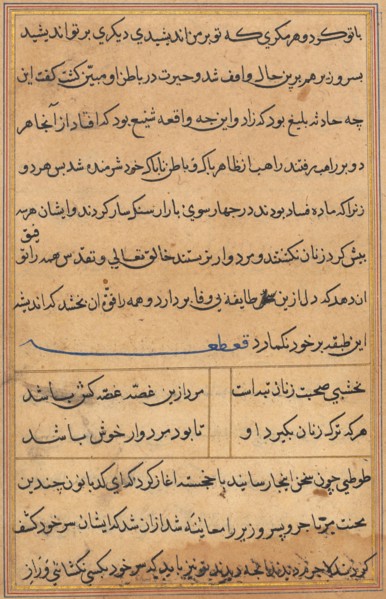 با تو کرد و هر مکری که تو بر من اندیشیدی دیگری بر تو اندیشید
بسر وزیر هم برین حال واقف شد و حیرت در باطن او مبین گشت گفت این
چه حادثه بلیغ بود که زاد و این چه واقعه شنیع بود که افتاد از آنجا هر
دو بر راهب رفتند راهب از ظاهر پاک و باطن ناپاک خود شرمنده شد پس هر دو
زنرا که ماده فساد بودند در چهار سوی بازار سنکسار کردند و ایشان هر سه
پیش کرد زنان نکشتند و مردوار بزیستند خالق تعالی و تقدس همه را توفیق
آن دهد که دل ازین طایفه بی وفا بردارد و همه را قوة آن بخشد که اندیشه
این طبقه بر خود نکمارد قطعه
نخشبی صحبت زنان تبداست
مرد ازین غصه غصه کش باشد
هر که ترک زنان بکیرد او
تا بود مردوار خوش باشد
طوطی چون سخن اینجا رسانید با خجسته آغاز کرد که ای کدبانو چندین
محنت مر تاجر و پسر وزیر را معاینه شد از آن شد که ایشان سر خود کشف
کردند تو نیز باید که سر خود بکسی نکشائی و راز